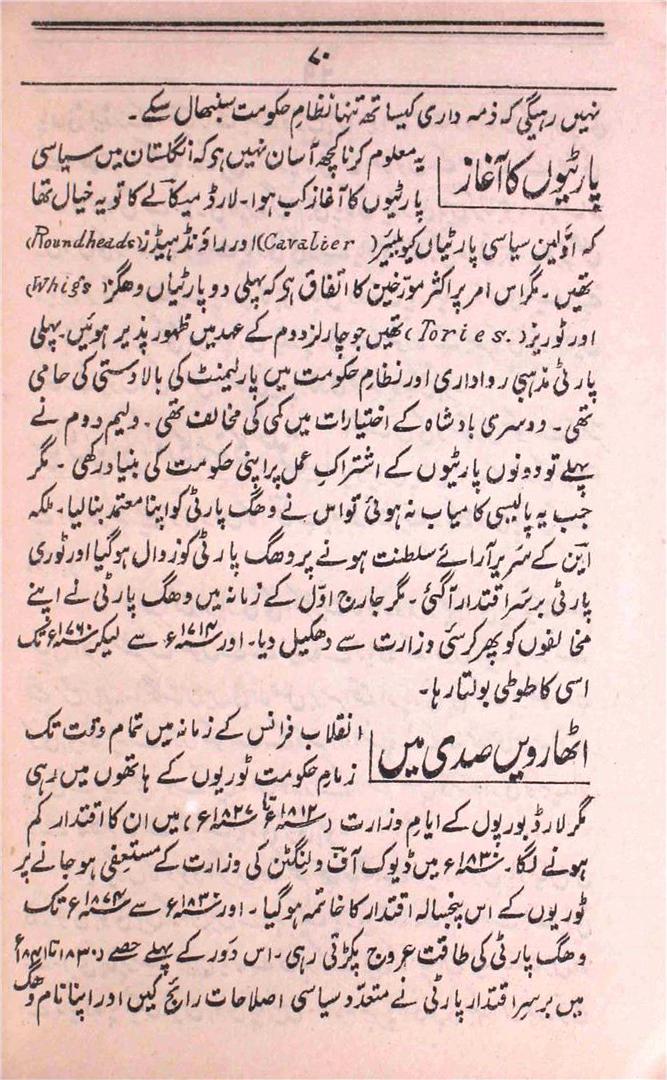 ۷۰
نہیں رہیگی کہ ذمہ داری کیساتھ تنہا نظامِ حکومت سنبھال سکے۔
پارٹیوں کا آغاز
یہ معلوم کرنا کچھ آسان نہیں ہو کہ انگلستان میں سیاسی
پارٹیوں کا آغاز کب ہوا۔ لارڈ میکالے کا تو یہ خیال تھا
کہ اوّلین سیاسی پارٹیاں کیولیئر (Cavalier) اور راؤنڈ ہیڈز (Roundheads)
تھیں۔ مگر اس امر پر اکثر مورّخین کا اتفاق ہو کہ پہلی دو پارٹیاں وھگز (Whigs)
اور ٹوریز (Tories.) تھیں جو چارلز دوم کے عہد میں ظہور پذیر ہوئیں۔ پہلی
پارٹی مذہبی رواداری اور نظامِ حکومت میں پارلیمنٹ کی بالا دستی کی حامی
تھی۔ دوسری بادشاہ کے اختیارات میں کمی کی مخالف تھی۔ ولیم دوم نے
پہلے تو دونوں پارٹیوں کے اشتراکِ عمل پر اپنی حکومت کی بنیاد رکھی۔ مگر
جب یہ پالیسی کامیاب نہ ہوئی تو اس نے وھگ پارٹی کو اپنا معتمد بنا لیا۔ ملکہ
این کے سریر آرائے سلطنت ہونے پر وھگ پارٹی کو زوال ہو گیا اور ٹوری
پارٹی برسرِ اقتدار آ گئی۔ مگر جارج اوّل کے زمانہ میں وھگ پارٹی نے اپنے
مخالفوں کو پھر کرسئی وزارت سے دھکیل دیا۔ اور ۱۷۱۴ء سے لیکر ۱۷۶۰ء تک
اسی کا طوطی بولتا رہا۔
اٹھارویں صدی میں
انقلاب فرانس کے زمانہ میں تمام وقت تک
زمامِ حکومت ٹوریوں کے ہاتھوں میں رہی
مگر لارڈ لورپول کے ایامِ وزارت (۱۸۱۲ء تا ۱۸۲۷ء) میں ان کا اقتدار کم
ہونے لگا۔ ۱۸۳۰ء میں ڈیوک آف ولنگٹن کی وزارت کے مستعفی ہو جانے پر
ٹوریوں کے اس پنجسالہ اقتدار کا خاتمہ ہو گیا۔ اور ۱۸۳۰ء سے ۱۸۷۴ء تک
وھگ پارٹی کی طاقت عروج پکڑتی رہی۔ اس دَور کے پہلے حصے (۱۸۳۰ تا ۱۸۴۱ء
میں برسرِ اقتدار پارٹی نے متعدد سیاسی اصلاحات رائج کیں اور اپنا نام وھگ